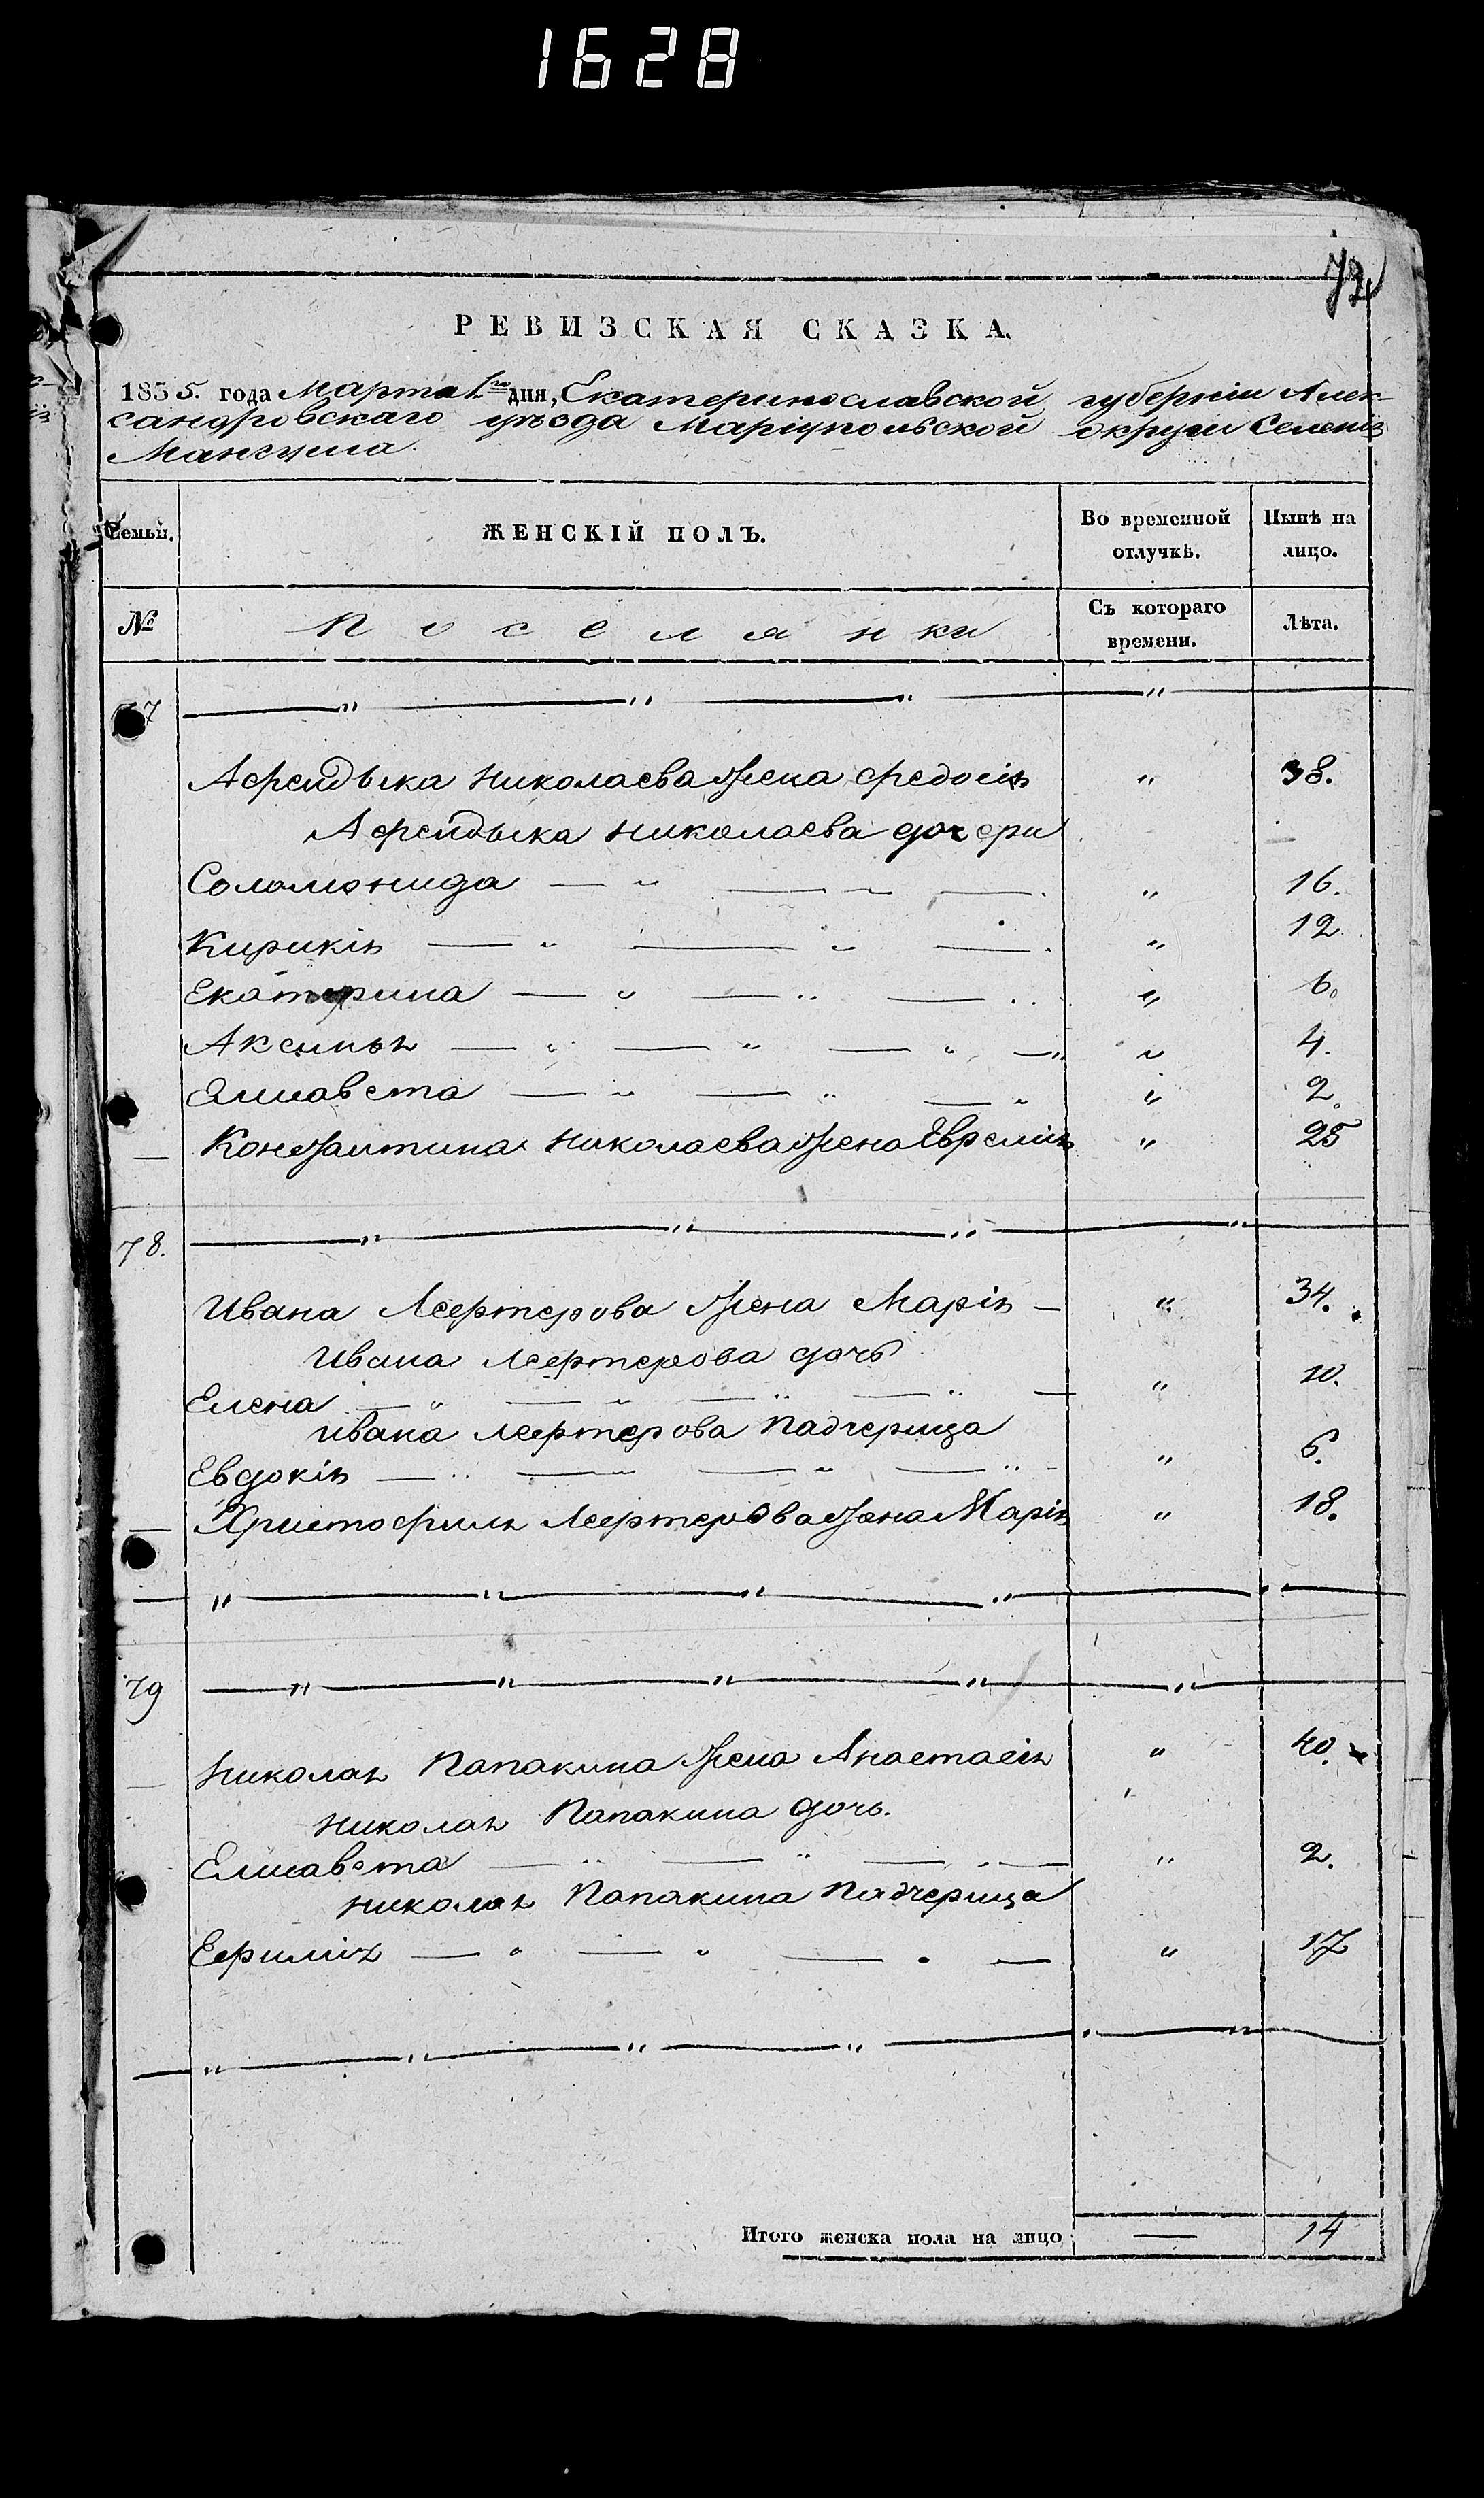 1628
РЕВИЗСКАЯ СКАЗКА.
1835. года Марта 1го дня, Екатеринославской губерніи Алек-
сандровскаго уѣзда Маріупольской округи Селенія
Мангуша.
Семьи. ЖЕНСКІЙ ПОЛЪ. Во временной отлучкѣ. Нынѣ на лицо.
№ Поселянки Съ котораго времени. Лѣта.
77 — " — " — " — " —
Афендыка Николаева жена Федосія " 38.
Афендыка Николаева дочери
Соломонида — " — " — " 16.
Кирикія — " — " — " 12
Екатерина — " — " — " " 6.
Аксинья — " — " — " — " 4.
Елисавета — " — " — " " 2.
— Константина Николаева жена Евфемія " 25
78. — " — " — " — " —
Ивана Лефтерова жена Марія — " 34.
Ивана Лефтерова дочь
Елена — " — " — " — " — " 10.
Ивана Лефтерова падчерица
Евдокія — " — " — " — " " 6.
— Христофила Лефтерова жена Марія " 18.
— " — " — " — " — " —
79 — " — " — " — " — " —
Николая Папакина жена Анастасія " 40.
Николая Папакина дочь.
Елисавета — " — " — " — " 2.
Николая Папакина падчерица
Ефимія — " — " — " — " 17
— " — " — " — " — " — " —
Итого женска пола на лицо — 14